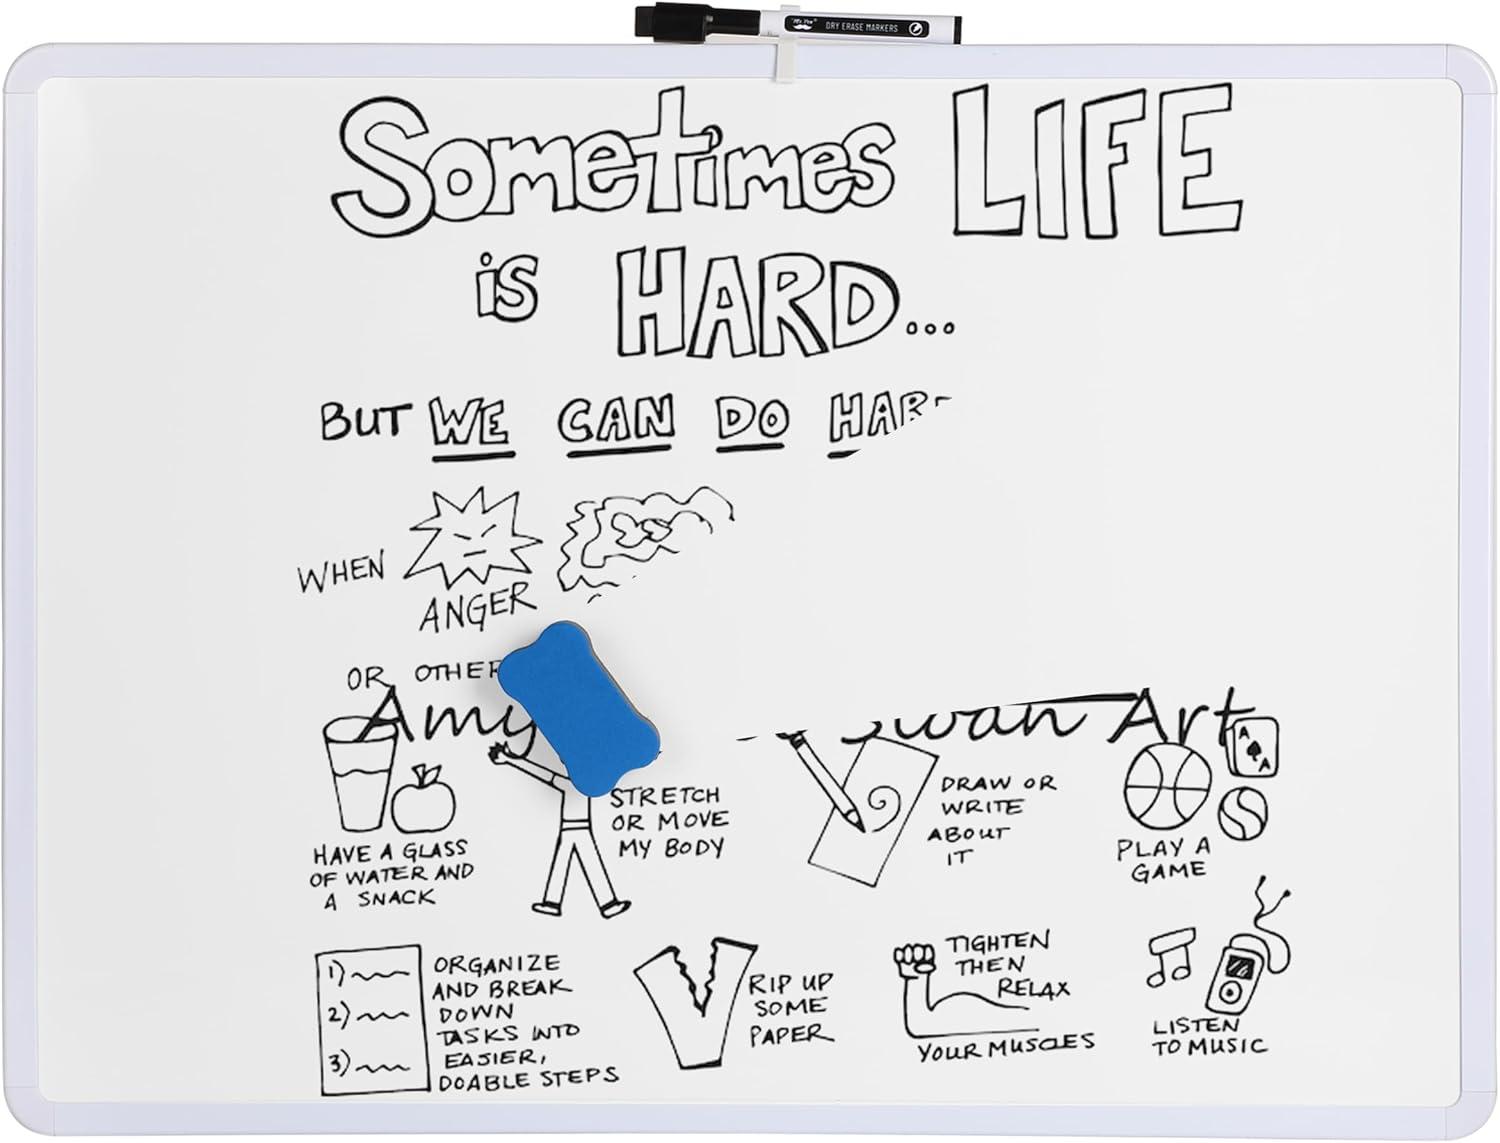 "Mr. Pen"
DRY ERASE MARKERS
Sometimes LIFE
is HARD...
BUT WE CAN DO HAR
WHEN
ANGER
OR OTHER
Amy Swan Art
A
A
HAVE A GLASS
OF WATER AND
A SNACK
STRETCH
OR MOVE
MY BODY
DRAW OR
WRITE
ABOUT
IT
PLAY A
GAME
1)
2)
3)
ORGANIZE
AND BREAK
DOWN
TASKS INTO
EASIER,
DOABLE STEPS
RIP UP
SOME
PAPER
TIGHTEN
THEN
RELAX
YOUR MUSCLES
LISTEN
TO MUSIC